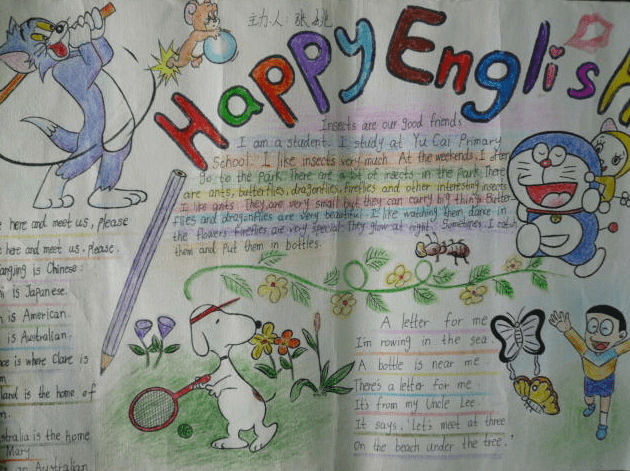 主办人: 张
Happy English
Insects are our good friends
I am a student. I study at Yu Cai Primary
School. I like insects very much. At the weekends, I often
go to the park. There are a lot of insects in the park. There
are ants, butterflies, dragonflies, fireflies and other interesting insects
I like ants. They are very small but they can carry big things. Butter-
flies and dragonflies are very beautiful. I like watching them dance in
the flowers. Fireflies are very special. They glow at night. Sometimes I catch
them and put them in bottles.
here and meet us, please
here and meet us, please.
is Chinese.
is Japanese.
is American.
is Australian.
is where Clare is
land is the home of
stralia is the home
Mary.
an Australian.
A letter for me
I'm rowing in the sea.
A bottle is near me
There's a letter for me.
It's from my Uncle Lee.
It says, Let's meet at three
On the beach under the tree.'